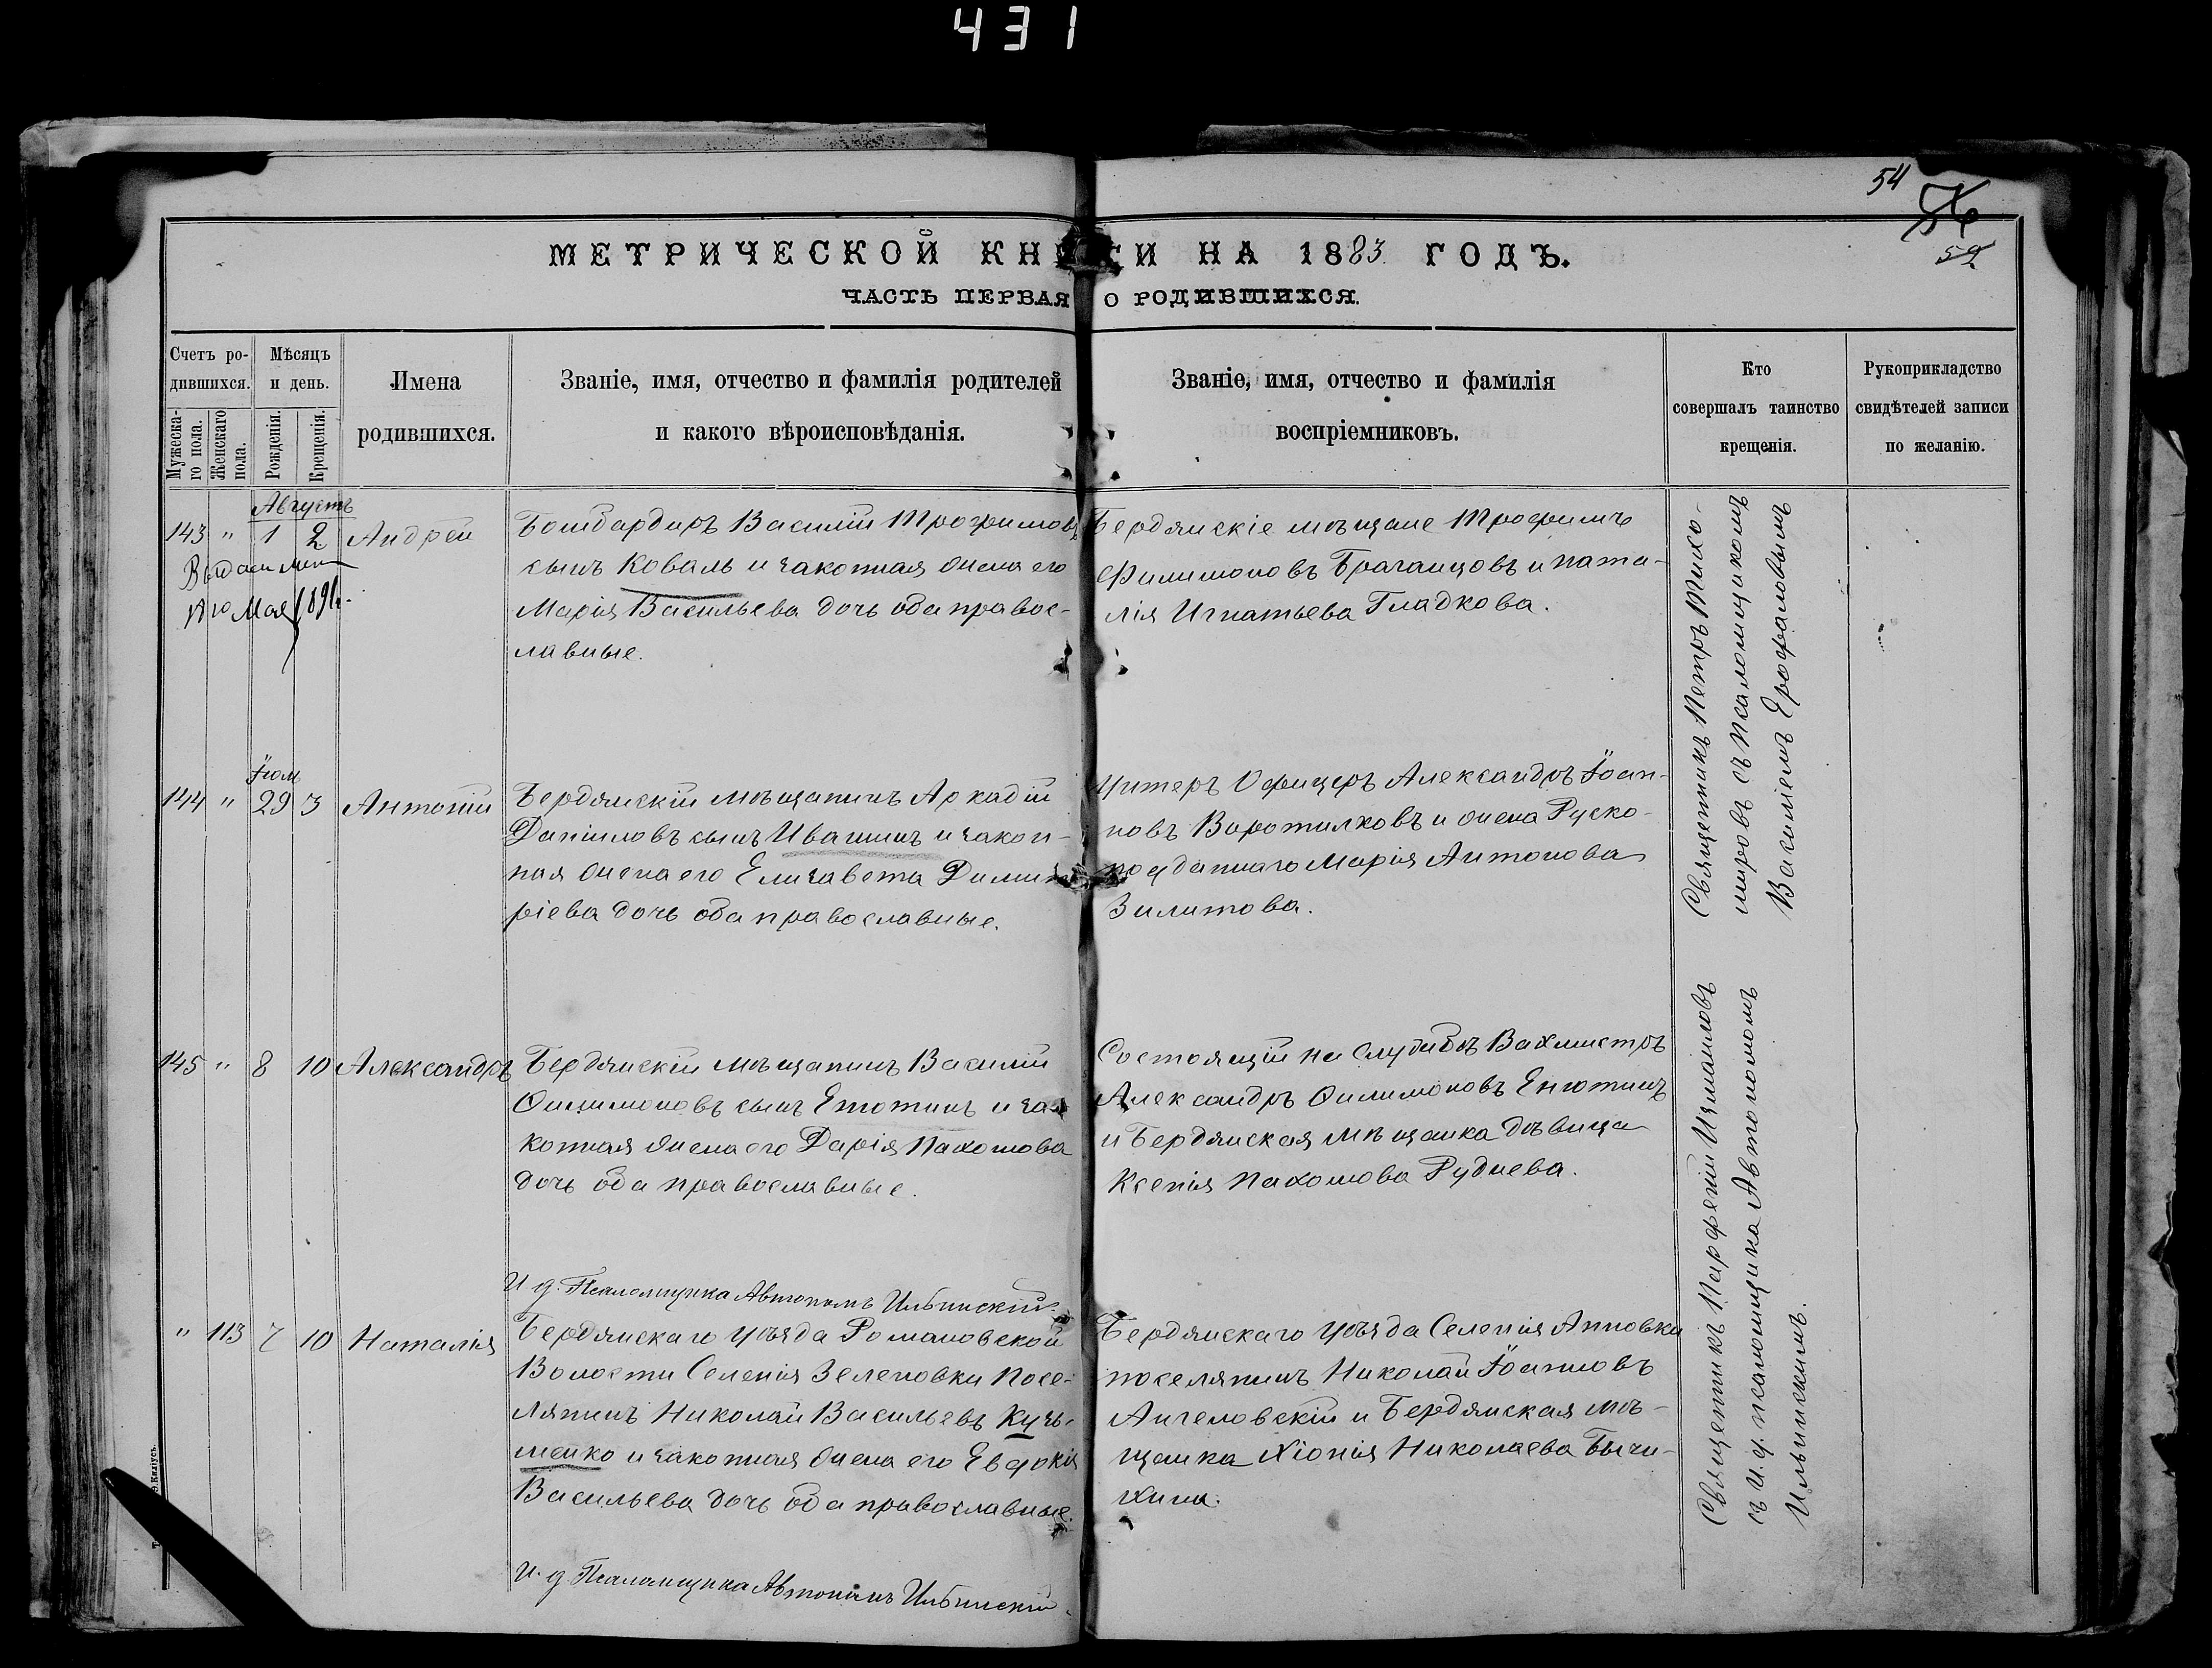 431
54
56
59
МЕТРИЧЕСКОЙ КНИГИ НА 1883 ГОДЪ.
ЧАСТЬ ПЕРВАЯ О РОДИВШИХСЯ.
Счетъ ро-
дившихся.
Мужеска-
го пола.
Женскаго
пола.
Мѣсяцъ
и день.
Рожденія.
Крещенія.
Имена
родившихся.
Званіе, имя, отчество и фамилія родителей
и какого вѣроисповѣданія.
Званіе, имя, отчество и фамилія
воспріемниковъ.
Кто
совершалъ таинство
крещенія.
Рукоприкладство
свидѣтелей записи
по желанію.
Августъ
143 " 1 2 Андрей
Мая 1891
Бомбардиръ Василій Трофимовъ
сынъ Коваль и законная жена его
Марія Васильева дочь оба правос-
лавные.
Бердянскіе мѣщане Трофимъ
Филимоновъ Браганцовъ и Ната-
лія Игнатьева Гладкова.
Священникъ Петръ Тихо-
мировъ съ Псаломщикомъ
Василіемъ Ерофаловымъ
Іюл
144 " 29 3 Антоній
Бердянскій мѣщанинъ Аркадій
Даніиловъ сынъ Ивашинъ и закон-
ная жена его Елизавета Димит
ріева дочь оба православные.
Унтеръ Офицеръ Александръ Іоан-
новъ Воротилковъ и жена Руско-
подданнаго Марія Антонова
Зилитова.
145 " 8 10 Александръ
Бердянскій мѣщанинъ Василій
Филимоновъ сынъ Енютинъ и за
конная жена его Дарія Пахомова
дочь оба православные.
Состоящій на службѣ Вахмистръ
Александръ Филимоновъ Енютинъ
и Бердянская мѣщанка дѣвица
Ксенія Пахомова Руднева.
Священникъ Парфеній Измаиловъ
съ И. д. псаломщика Автономомъ
Ильинскимъ.
И д. Псаломщика Автономъ Ильинскій
" 113 7 10 Наталія
Бердянскаго уѣзда Романовской
Волости Селенія Зеленовки Посе-
лянинъ Николай Васильевъ Кузь-
менко и законная жена его Евдокія
Васильева дочь оба православные.
Бердянскаго уѣзда Селенія Анновки
поселянинъ Николай Іоанновъ
Ангеловскій и Бердянская мѣ-
щанка Хіонія Николаева Бычи-
хина.
И. д. Псаломщика Автономъ Ильинскій